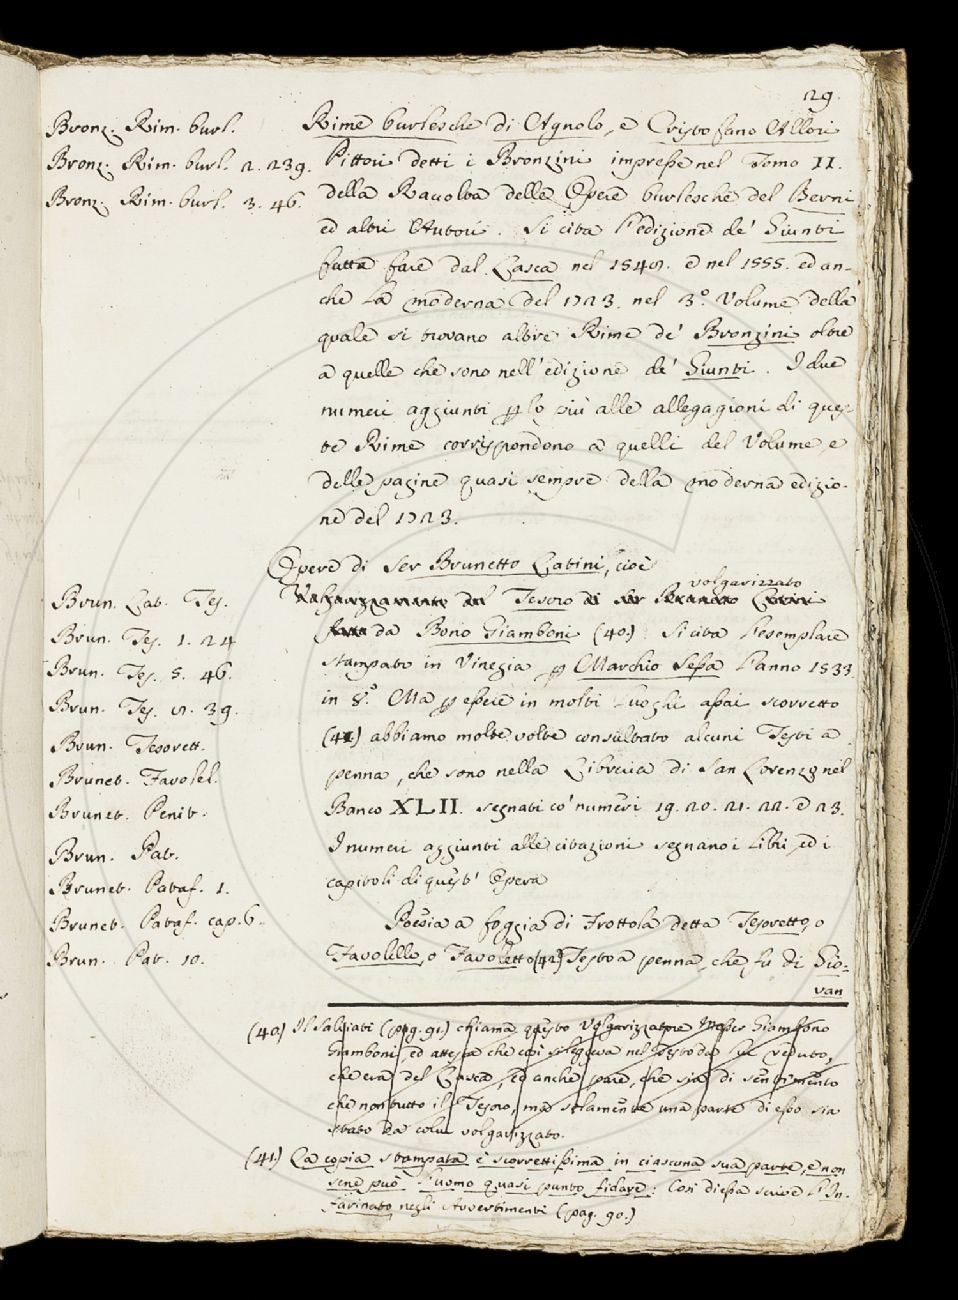 29.
Bronz. Rim. burl.
Bronz. Rim. burl. 2. 239.
Bronz. Rim. burl. 3. 46.
Rime burlesche di Agnolo, e Cristofano Allori
Pittori detti i Bronzini impresse nel Tomo II.
della Raccolta delle Opere burlesche del Berni
ed altri Autori. Si cita l'edizione de' Giunti
fatta fare dal Lasca nel 1548. e nel 1555. ed an-
che la moderna del 1723. nel 3.º Volume della
quale si trovano altre Rime de' Bronzini oltre
a quelle che sono nell'edizione de' Giunti. I due
numeri aggiunti p lo più alle allegagioni di ques-
te Rime corrispondono a quelli del Volume, e
delle pagine quasi sempre della moderna edizio-
ne del 1723.
Brun. Lat. Tes.
Brun. Tes. 1. 24
Brun. Tes. 5. 46.
Brun. Tes. 7. 39.
Brun. Tesorett.
Brunet. Favosel.
Brunet. Penit.
Brun. Pat.
Brunet. Pataf. 1.
Brunet. Pataf. cap. 6.
Brun. Pat. 10.
Opere di Ser Brunetto Latini, cioè
volgarizzato
Volgarizzamento del Tesoro di Ser Brunetto Latini
fatto da Bono Giamboni (40.) Si cita l'esemplare
stampato in Vinegia p Marchio Sessa l'anno 1533.
in 8.º Ma p essere in molti luoghi assai scorretto
(41) abbiamo molte volte consultato alcuni Testi a
penna, che sono nella Libreria di San Lorenzo nel
Banco XLII. segnati co' numeri 19. 20. 21. 22. e 23.
I numeri aggiunti alle citazioni segnano i Libri, ed i
capitoli di quest' Opera
Poesia a foggia di Frottola detta Tesoretto, o
Favolello, o Favoletto (42) Testo a penna, che fu di Gio-
van
(40) Il Salviati (pag. 91.) chiama questo Volgarizzatore Messer Giambono
Giamboni, ed attesta che così si leggeva nel Testo da lui veduto,
che era del Lasca, ed anche pare, che sia di sentimento
che non tutto il Tesoro, ma solamente una parte di esso sia
stato da colui volgarizzato.
(41.) La copia stampata è scorrettissima in ciascuna sua parte, e non
sene può l'uomo quasi punto fidare: Così di essa scrive l'In-
farinato negli Avvertimenti (pag. 90.)